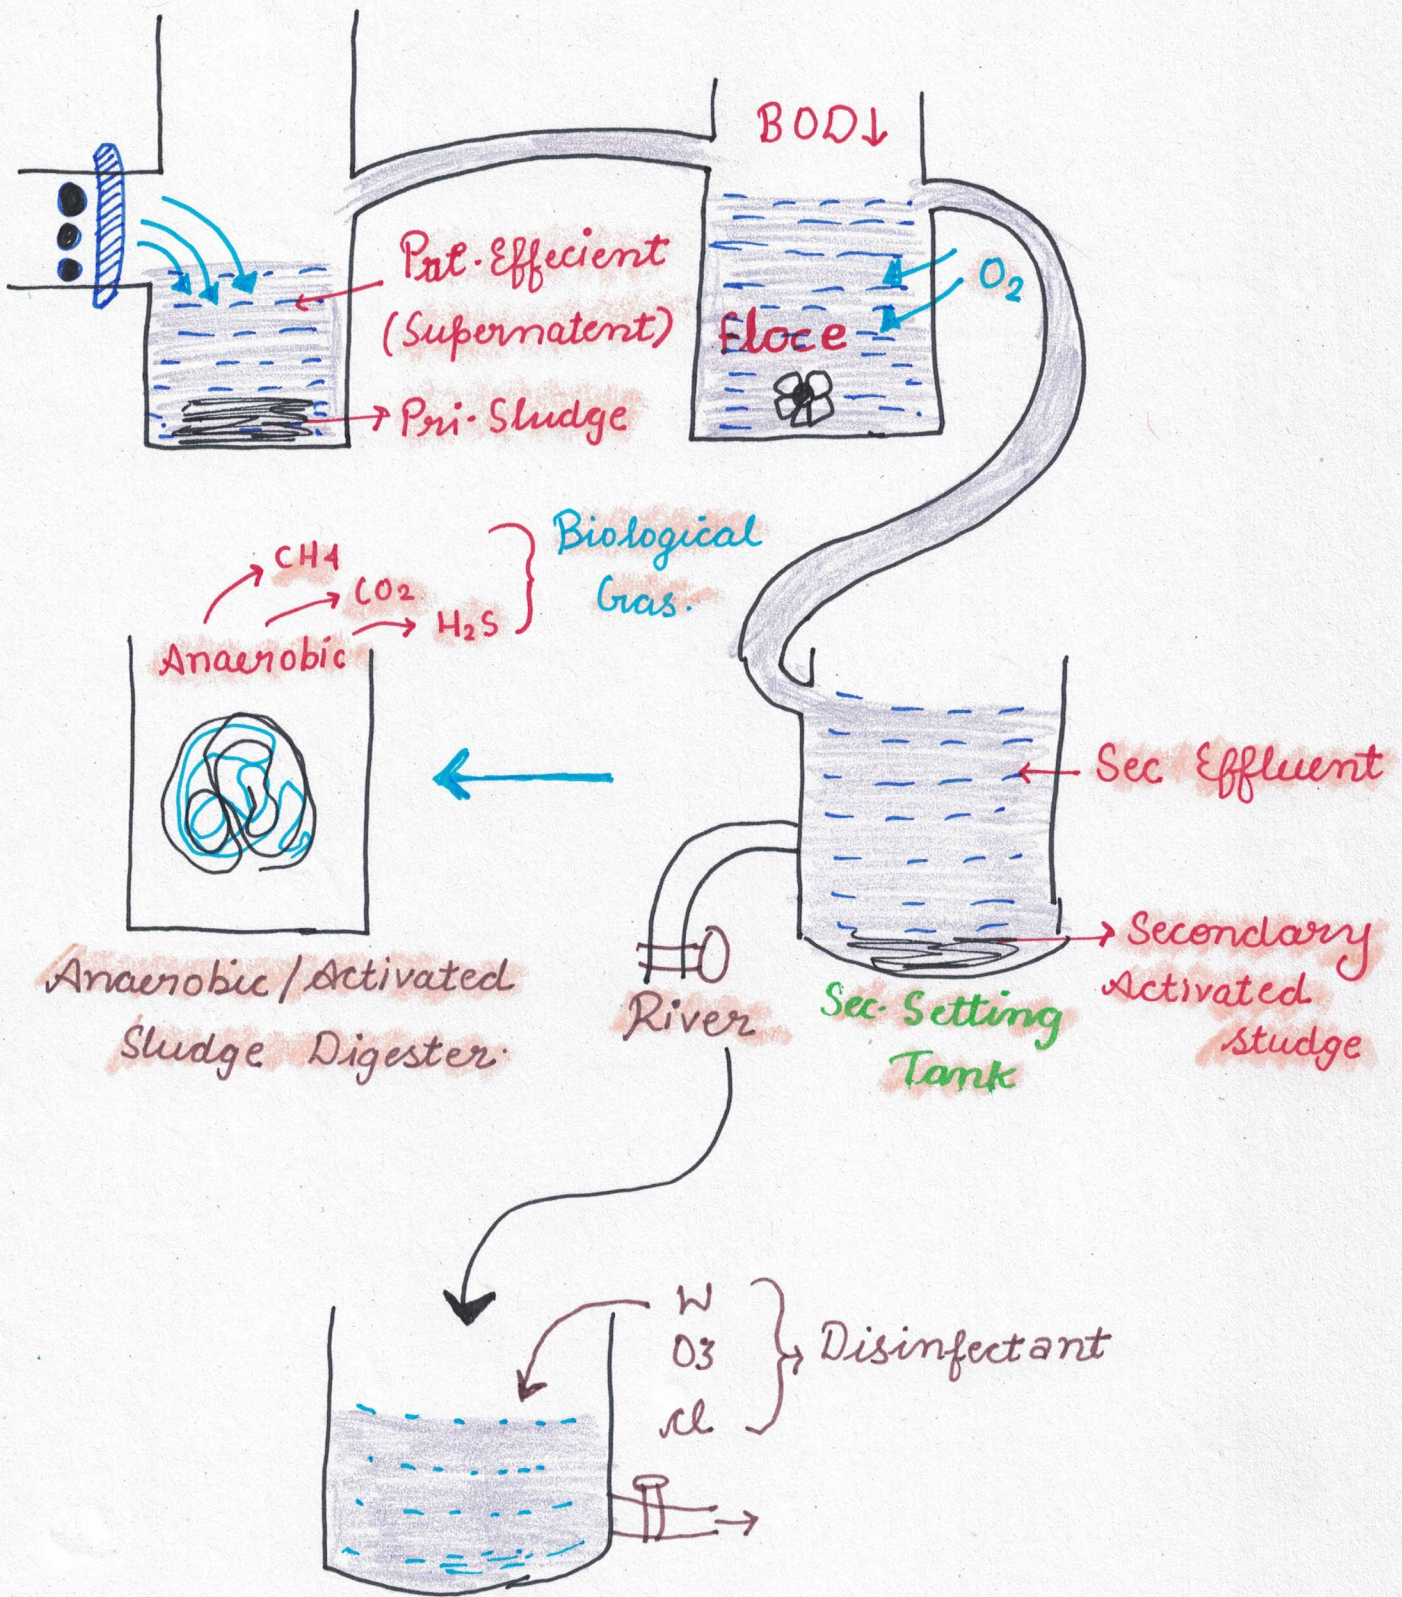 BOD↓
O2
Prt. Effecient
(Supernatent)
Floce
Pri. Sludge
CH4
CO2
H2S
Biological
Gas.
Anaerobic
Sec Effluent
Secondary
Activated
studge
Anaerobic/Activated
Sludge Digester.
River
Sec. Setting
Tank
W
O3
Cl
Disinfectant